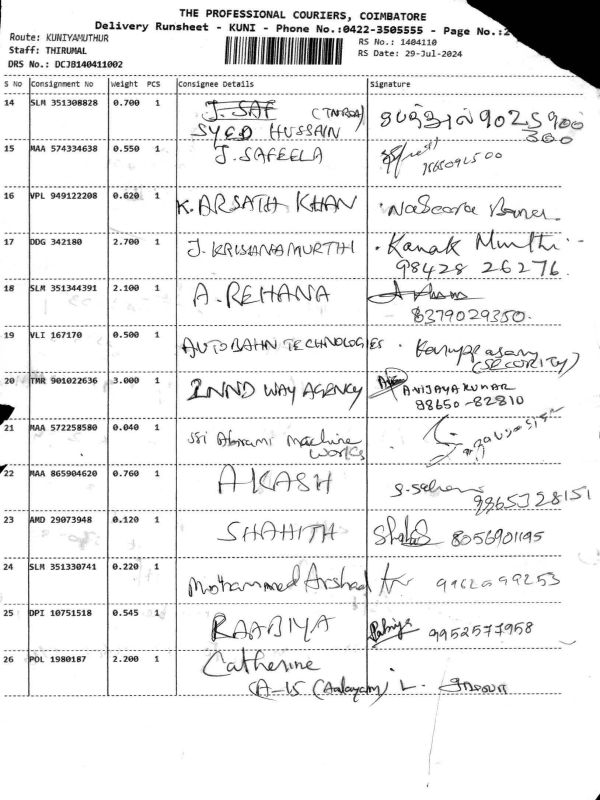 THE PROFESSIONAL COURIERS, COIMBATORE
Delivery Runsheet - KUNI - Phone No.:0422-3505555 - Page No.:2
Route: KUNIYAMUTHUR
Staff: THIRUMAL
DRS No.: DCJB140411002
RS No.: 1404110
RS Date: 29-Jul-2024
S No Consignment No Weight PCS Consignee Details Signature
14 SLM 351308828 0.700 1 J. SAF (TNRDA)
SYED HUSSAIN 9025900
300
15 MAA 574334638 0.550 1 J. SAFEELA
16 VPL 949122208 0.620 1 K. ARSATH KHAN
17 DDG 342180 2.700 1 J. KRISHNAMURTHI Kanak Murthi
98428 26276
18 SLM 351344391 2.100 1 A. REHANA
8379029350
19 VLI 167170 0.500 1 AUTOBAHN TECHNOLOGIES Karuppasamy
(SECURITY)
20 TMR 901022636 3.000 1 INND WAY AGENCY A.VIJAYAKUMAR
98650-82810
21 MAA 572258580 0.040 1 Sri Abirami Machine
works
22 MAA 865904620 0.760 1 AKASH
9865328151
23 AMD 29073948 0.120 1 SHAHITH 8056901195
24 SLM 351330741 0.220 1 Mohammed Arshad
25 DPI 10751518 0.545 1 RAABIYA 9952577958
26 POL 1980187 2.200 1 Catherine
A-15 (Aalayam) L.